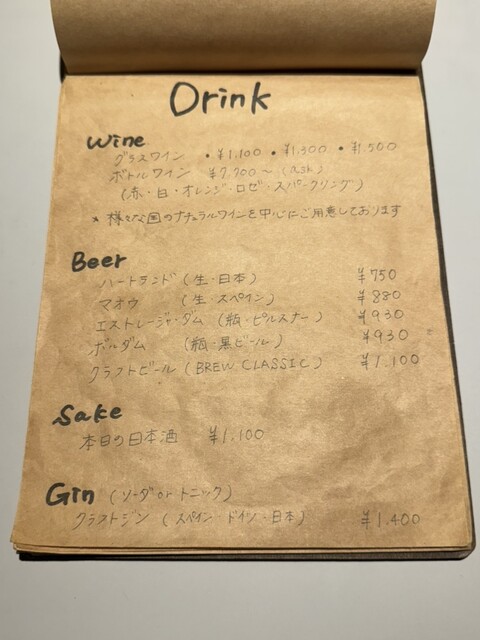 Drink
Wine
グラスワイン ・¥1,100 ・¥1,300 ・¥1,500
ボトルワイン ¥7,700〜 (ask)
(赤・白・オレンジ・ロゼ・スパークリング)
* 様々な国のナチュラルワインを中心にご用意しております
Beer
ハートランド (生・日本) ¥750
マオウ (生・スペイン) ¥880
エストレージャ・ダム (瓶・ピルスナー) ¥930
ボルダム (瓶・黒ビール) ¥930
クラフトビール (BREW CLASSIC) ¥1,100
Sake
本日の日本酒 ¥1,100
Gin (ソーダ or トニック)
クラフトジン (スペイン・ドイツ・日本) ¥1,400